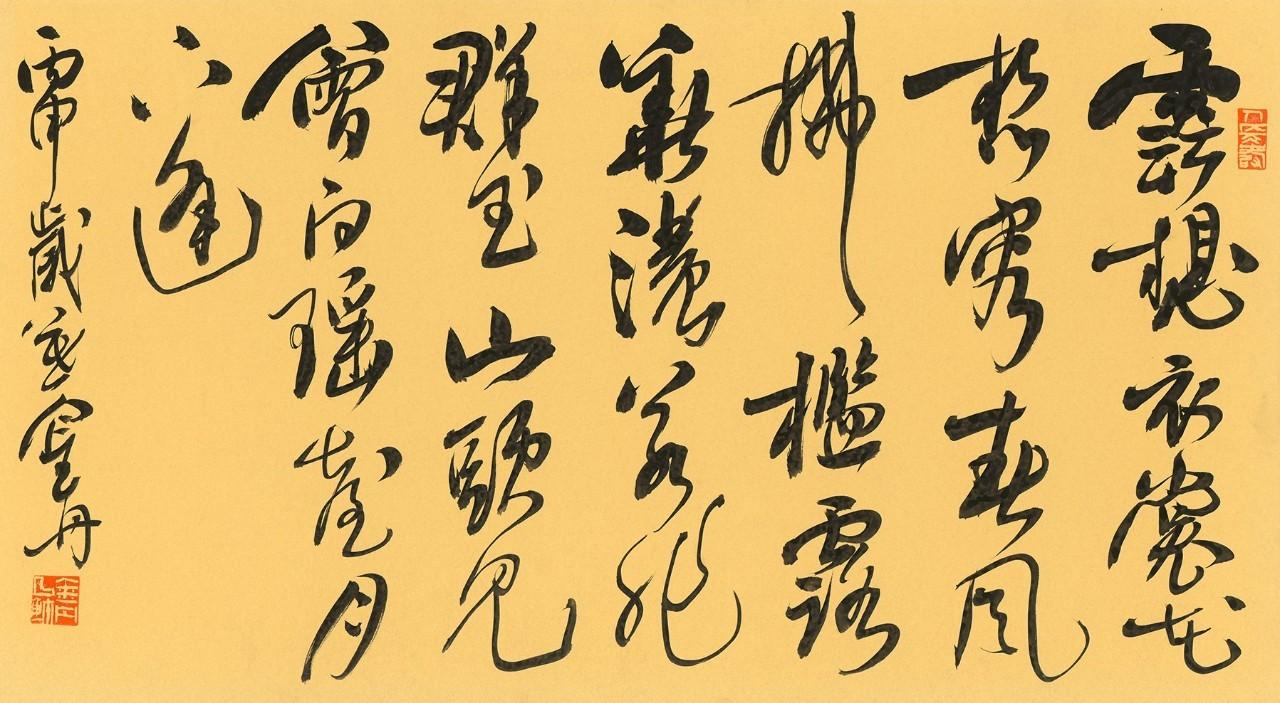 雲想衣裳花
想容春風
拂檻露
華濃若非
群玉山頭見
會向瑶臺月
下逢
丙申歲